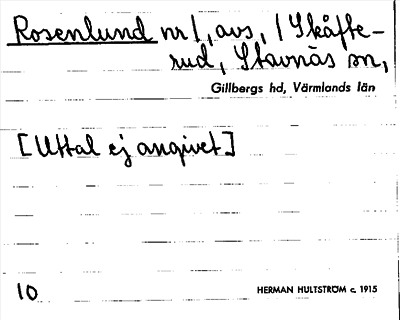 Rosenlund nr 1, avs, / Skåfte-
rud, Stavnäs sn,
Gillbergs hd, Värmlands län
[Uttal ej angivet]
10
HERMAN HULTSTRÖM c. 1915